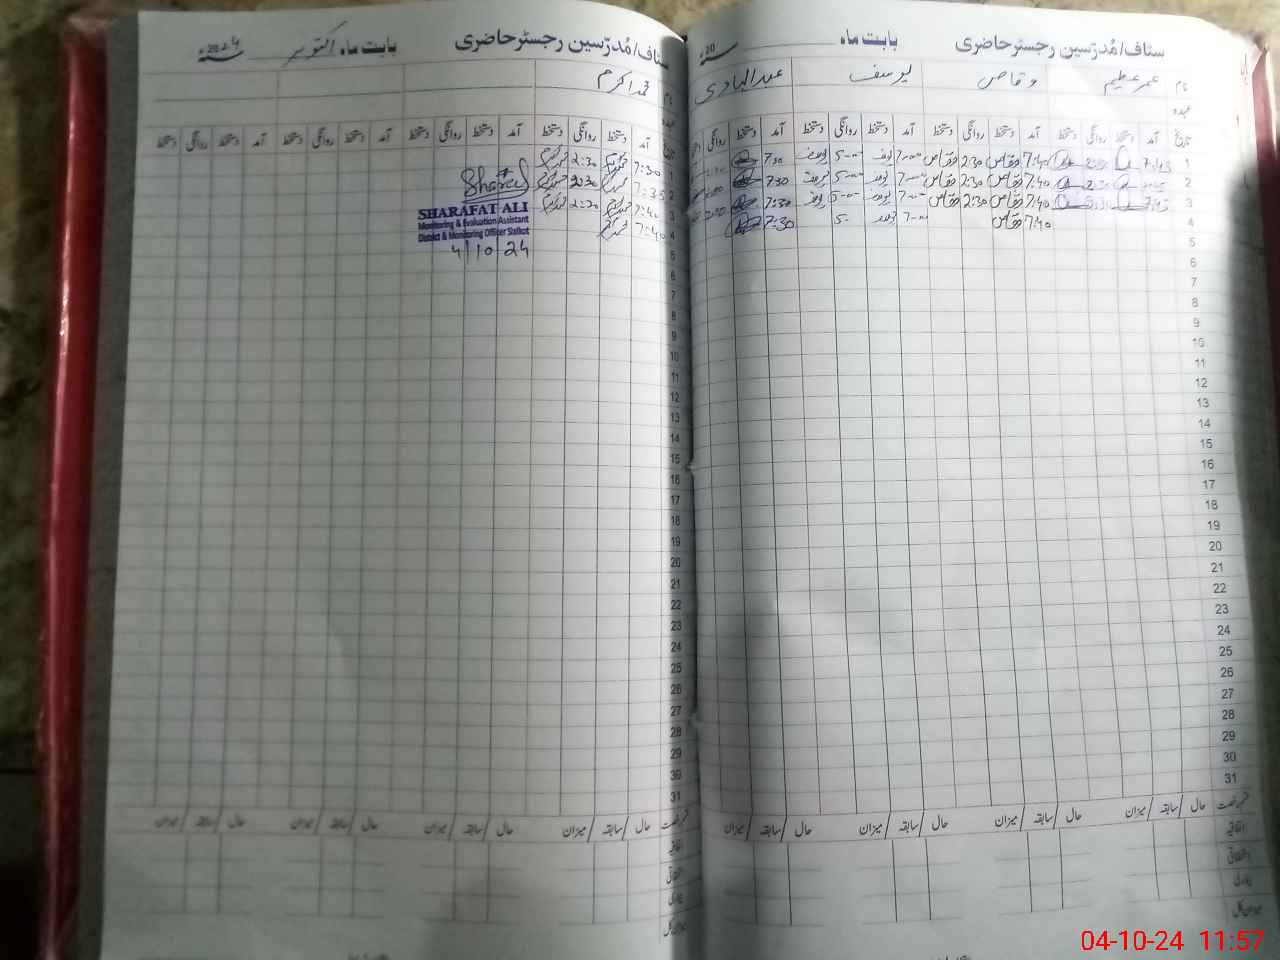 سٹاف/مُدرّسین رجسٹر حاضری بابت ماہ 20 سنہ
نام عمر عظیم وقاص یوسف عبدالہادی
عہدہ
تاریخ آمد دستخط روانگی دستخط آمد دستخط روانگی دستخط آمد دستخط روانگی دستخط آمد دستخط روانگی
1 7:45 7:40 وقاص 2:30 وقاص 7:00 یوسف 5:00 یوسف 7:30
2 7:40 وقاص 2:30 وقاص 7:00 یوسف 5:00 یوسف 7:30
3 7:45 7:40 وقاص 2:30 وقاص 7:00 یوسف 5:00 یوسف 7:30
4 7:40 وقاص 7:00 یوسف 5:0 7:30
5
6
7
8
9
10
11
12
13
14
15
16
17
18
19
20
21
22
23
24
25
26
27
28
29
30
31
قسم رخصت حال / سابقہ / میزان حال / سابقہ / میزان حال / سابقہ / میزان حال / سابقہ / میزان
اتفاقیہ
استحقاقی
بیماری
میزان کل
سٹاف/مُدرّسین رجسٹر حاضری بابت ماہ اکتوبر 2024 سنہ
نام محمد اکرم
عہدہ
تاریخ آمد دستخط روانگی دستخط آمد دستخط روانگی دستخط آمد دستخط روانگی دستخط آمد دستخط روانگی دستخط
1 7:30 2:30
2 7:35 2:30
3 7:40 2:30
4 7:40
Sharafat
SHARAFAT ALI
Monitoring & Evaluation Assistant
District & Monitoring Officer Sialkot
4/10/24
5
6
7
8
9
10
11
12
13
14
15
16
17
18
19
20
21
22
23
24
25
26
27
28
29
30
31
قسم رخصت حال / سابقہ / میزان حال / سابقہ / میزان حال / سابقہ / میزان حال / سابقہ / میزان
اتفاقیہ
استحقاقی
بیماری
میزان کل
04-10-24 11:57